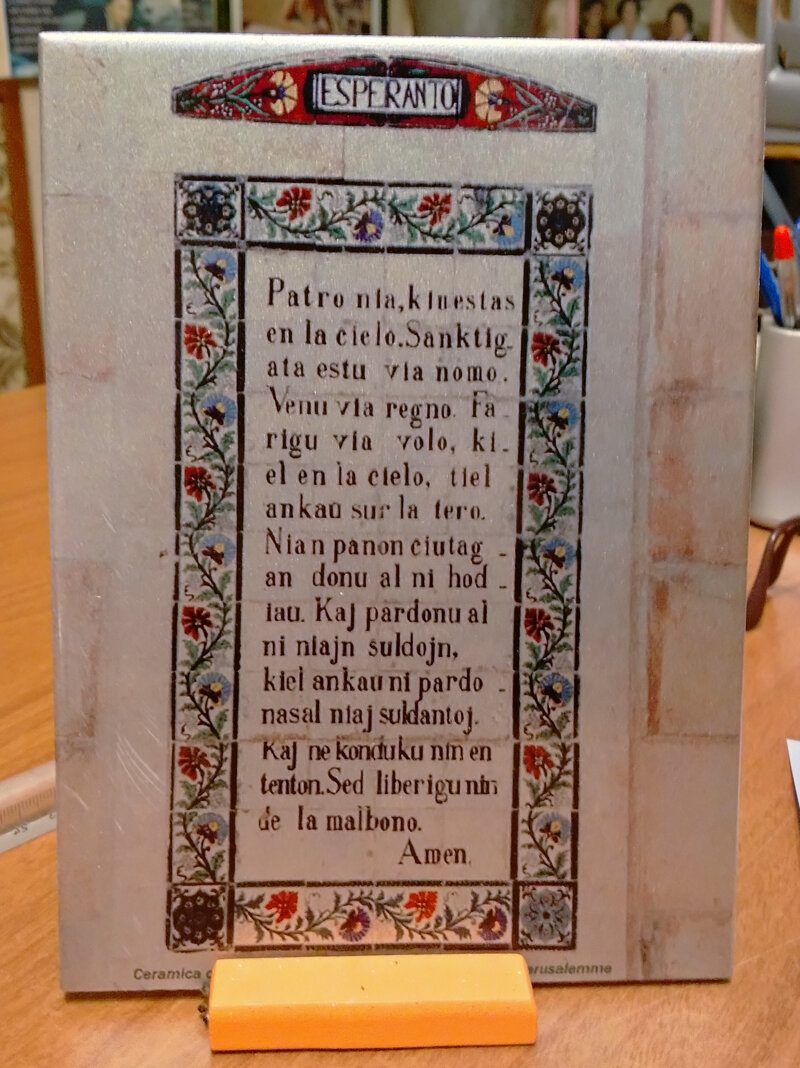 ESPERANTO
Patro nia, kiu estas
en la cielo. Sanktig-
ata estu via nomo.
Venu via regno. Fa-
rigu via volo, ki-
el en la cielo, tiel
ankau sur la tero.
Nian panon ciutag-
an donu al ni hod-
iau. Kaj pardonu al
ni niajn suldojn,
kiel ankau ni pardo-
nas al niaj suldantoj.
Kaj ne konduku nin en
tenton. Sed liberigu nin
de la malbono.
Amen.
Ceramica